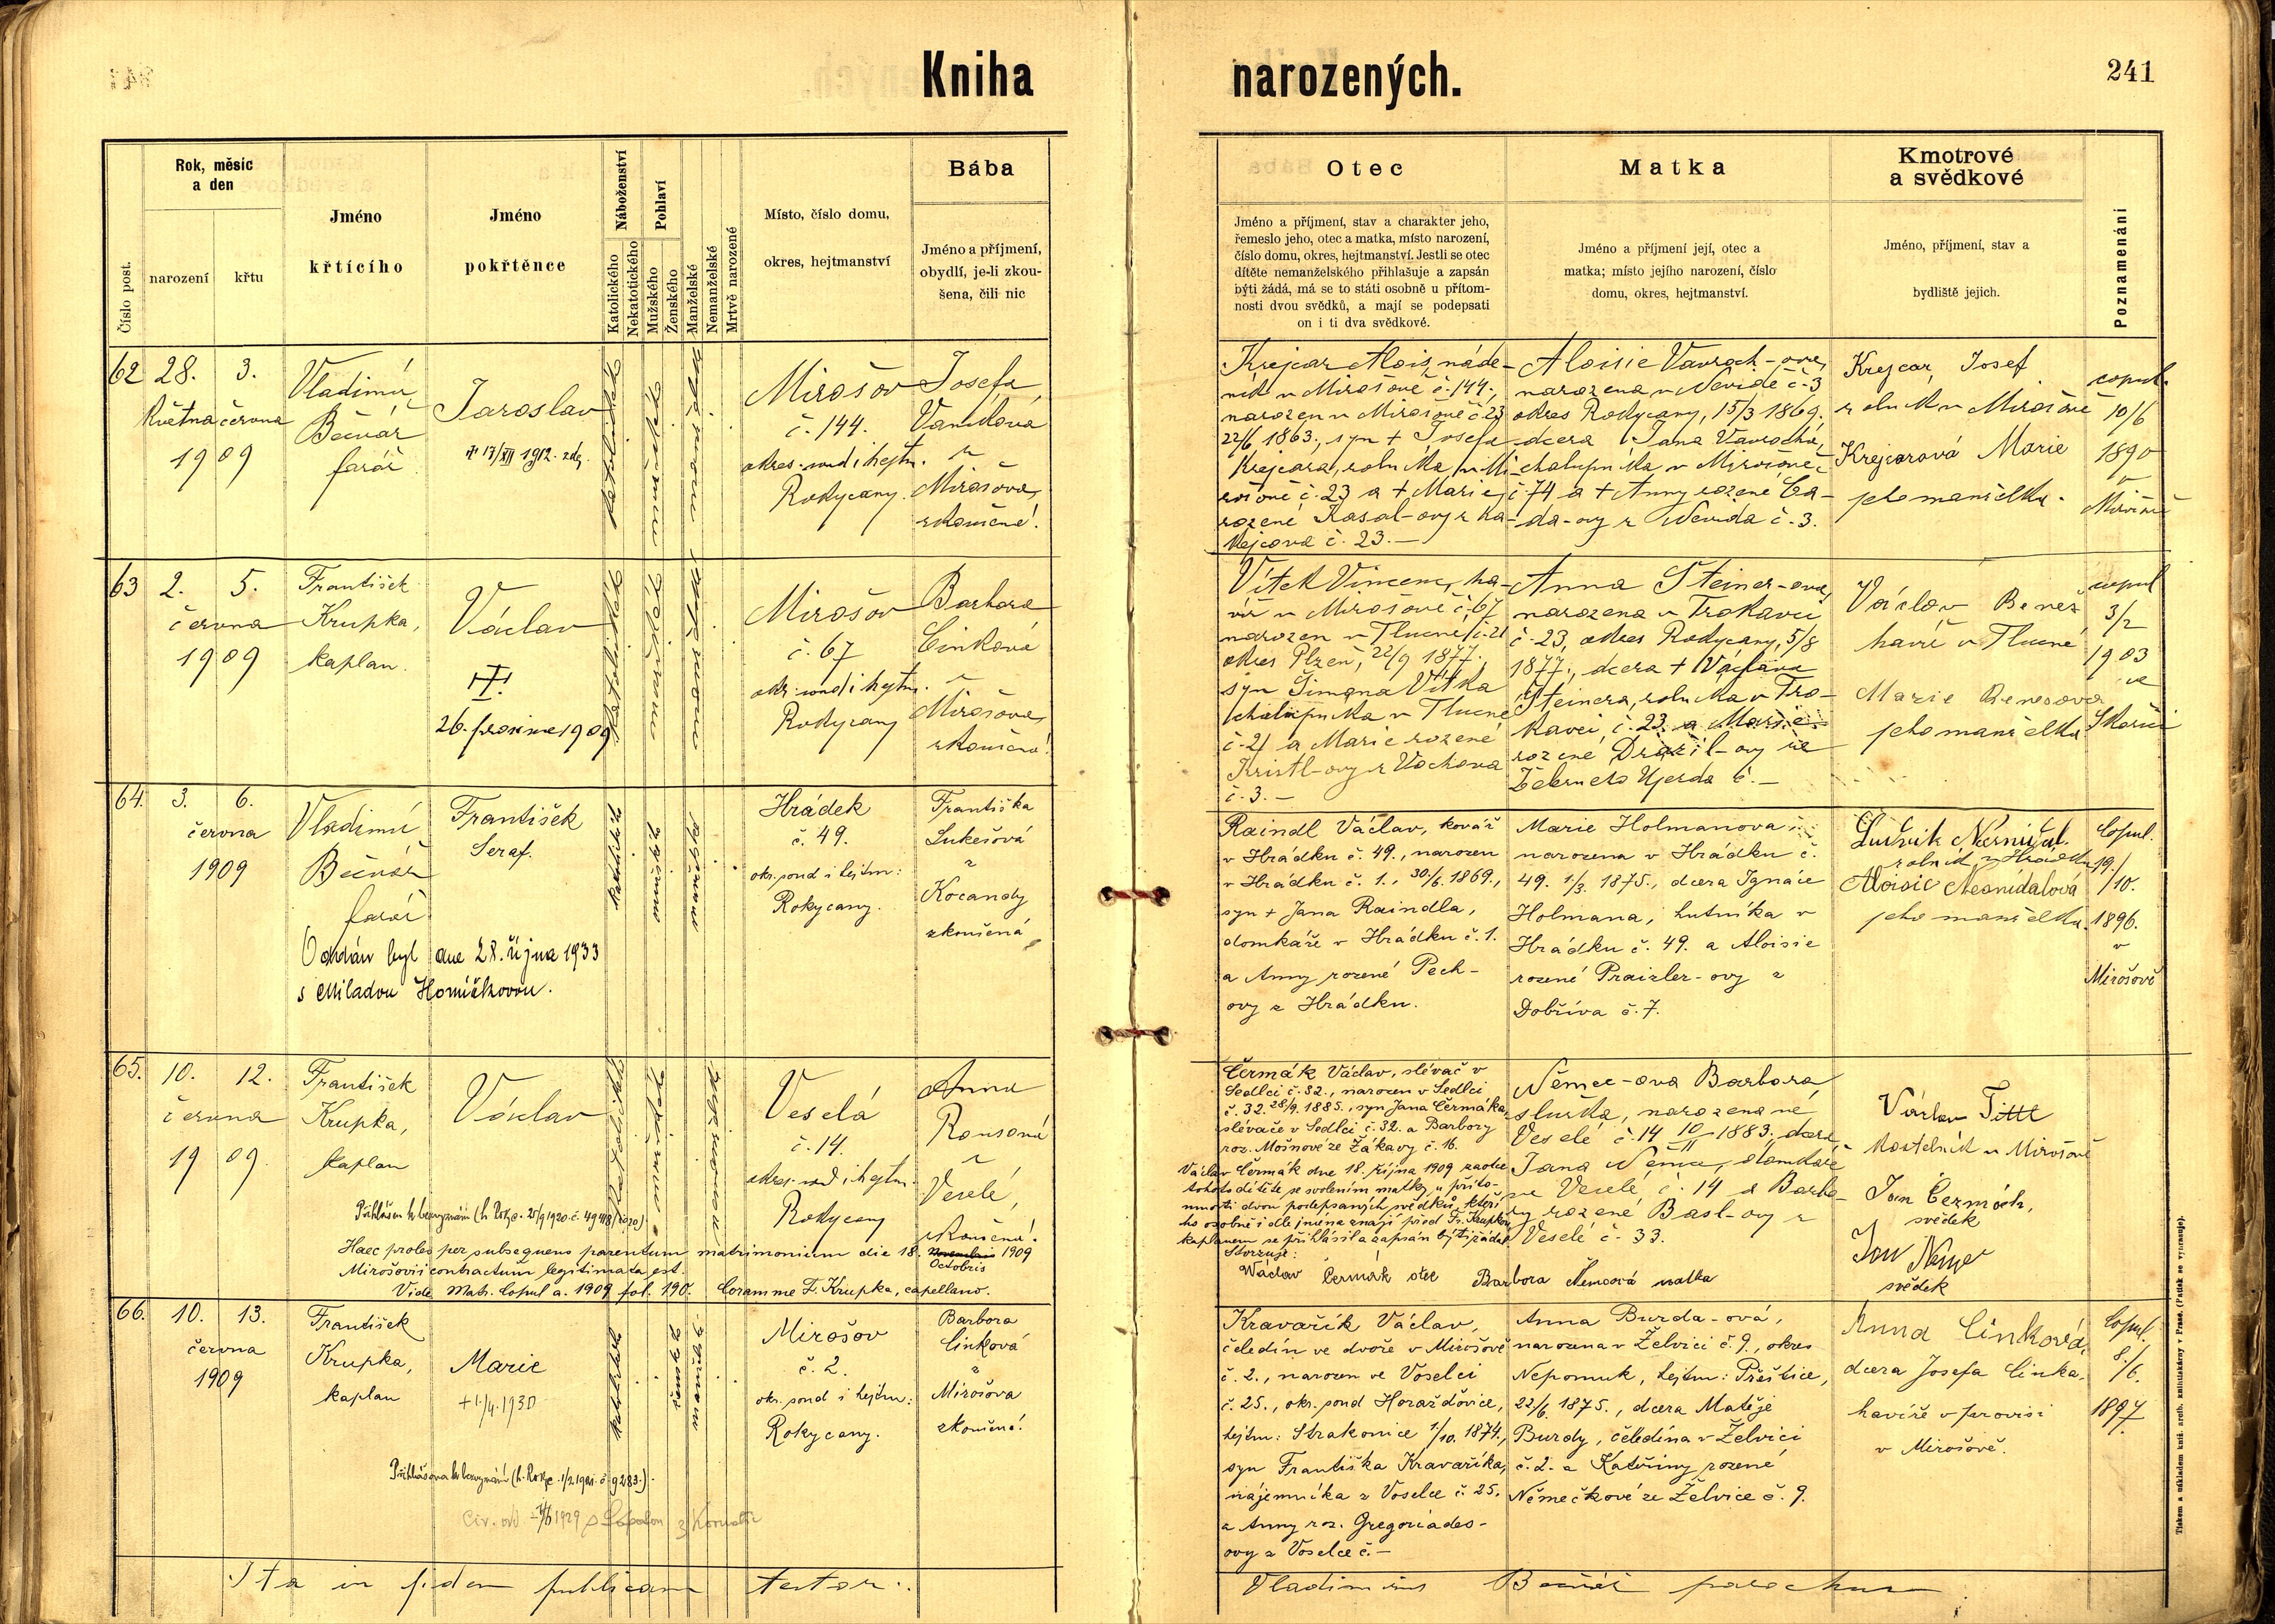 Kniha narozených.
241
Číslo post.
Rok, měsíc
a den
narození
křtu
Jméno
křtícího
Jméno
pokřtěnce
Náboženství
Katolického
Nekatotického
Pohlaví
Mužského
Ženského
Manželské
Nemanželské
Mrtvě narozené
Místo, číslo domu,
okres, hejtmanství
Bába
Jméno a příjmení,
obydlí, je-li zkou-
šena, čili nic
Otec
Jméno a příjmení, stav a charakter jeho,
řemeslo jeho, otec a matka, místo narození,
číslo domu, okres, hejtmanství. Jestli se otec
dítěte nemanželského přihlašuje a zapsán
býti žádá, má se to státi osobně u přítom-
nosti dvou svědků, a mají se podepsati
on i ti dva svědkové.
Matka
Jméno a příjmení její, otec a
matka; místo jejího narození, číslo
domu, okres, hejtmanství.
Kmotrové
a svědkové
Jméno, příjmení, stav a
bydliště jejich.
Poznamenání
62
28. 3.
Května června
1909
Vladimír
Bečvář
farář
Jaroslav
17/XII 1912
katolické
Mirošov
č. 144.
okres soud i hejtm.
Rokycany.
Josefa
z
Mirošova,
zkoušená.
Krejcar Alois, náde-
ník v Mirošově č. 144,
narozen v Mirošově č 23
22/6 1863., syn + Josefa
Krejcara, rolníka v Mi-
rošově č. 23 a + Marie,
rozené
č. 23.—
Aloisie Vavroch-ova,
narozena v Nevidě č. 3
okres Rokycany, 15/3 1869,
dcera Jana Vavrocha,
chalupníka v Mirošově
č 74 a + Anny rozené Ca-
da-ovy z Nevida č. 3.
Krejcar, Josef
rolník v Mirošově
Krejcarová Marie
jeho manželka.
copul.
10/6
1890
v
63
2. 5.
června
1909
František
Krupka,
kaplan.
Václav
26. prosince 1909
Mirošov
č. 67
okr. soud i hejtm.
Rokycany
Barbora
Cinková
z
Mirošova,
zkoušená!
Vítek Vincenc, ha-
víř v Mirošově č. 67
narozen v Tlucné č. 21
okres Plzeň, 22/9 1877.
syn Šimona Vítka
chalupníka v Tlucné
č. 21 a Marie rozené
Kristl-ovy z Vochova
č. 3.—
Anna Steiner-ova,
narozena v Trokavci
č. 23, okres Rokycany, 5/8
1877., dcera + Václava
Steinera, rolníka v Tro-
kavci, č. 23. a Marie
rozené ze
č.—
Václav Beneš
havíř v Tlucné
Marie Benešova
jeho manželka
copul
3/2
1903
ve
Skořici
64.
3. 6.
června
1909
Vladimír
Bečvář
farář
František
Seraf.
Oddán byl dne 28. října 1933
s Miladou Horníčkovou.
katolické
Hrádek
č. 49.
okr. soud i hejtm:
Rokycany.
Františka
Lukešová
z
Kocandy
zkoušená
Raindl Václav, kovář
v Hrádku č. 49., narozen
v Hrádku č. 1., 30/6. 1869.,
syn + Jana Raindla,
domkáře v Hrádku č. 1.
a Anny rozené Pech-
ovy z Hrádku.
Marie Holmanova
narozena v Hrádku č.
49. 1/3. 1875., dcera Ignáce
Holmana, hutníka v
Hrádku č. 49. a Aloisie
rozené Praizler-ovy z
Dobříva č. 7.
Ludvík
rolník z Hrádku
Aloisie Nesnídalová
jeho manželka.
Copul.
19/
/10.
1896.
v
Mirošově
65.
10. 12.
června
1909.
František
Krupka,
kaplan
Václav
Katolické
Veselá
č. 14.
okres. soud i hejtm.
Rokycany
Anna
z
Veselé,
zkoušená!
Haec proles per subsequens parentum matrimonium die 18. Novembris 1909
Octobris
Mirošovii contractum legitimata est.
Vide Matr. Copul a. 1909 fol. 190. Coram me F. Krupka, capellano.
Čermák Václav, slévač v
Sedlci č. 32., narozen v Sedlci
č. 32. 28/9. 1885., syn Jana Čermáka,
slévače v Sedlci č. 32. a Barbory
roz. Mošnové ze Žákavy č. 16.
Václav Čermák dne 18. října 1909 za otce
tohoto dítěte se svolením matky u příto-
mnosti dvou podepsaných svědků, kteří
ho osobně i dle jména znají před Fr. Krupkou
kaplanem se přihlásil a zapsán býti žádal
Stvrzuje:
Václav Čermák otec Barbora Němcová matka
Němec-ova Barbora,
služka, narozena ve
Veselé č. 14 10/II 1883., dcera
Jana Němce, domkáře
ve Veselé č. 14 a Barbo-
ry rozené Basl-ovy z
Veselé č. 33.
Václav Tittl
kostelník v Mirošově
Jan Čermák,
svědek
Jan Němec
svědek
66.
10. 13.
června
1909
František
Krupka,
kaplan
Marie
+ 1./4. 1930
Mirošov
č. 2.
okr. soud i hejtm:
Rokycany.
Barbora
Cinková
z
Mirošova
zkoušená!
Kravařík Václav,
čeledín ve dvoře v Mirošově
č. 2., narozen ve Voselci
č. 25., okr. soud Horažďovice,
hejtm: Strakonice 1/10. 1874.,
syn Františka Kravaříka,
nájemníka z Voselce č. 25.
a Anny roz. Gregoriades-
ovy z Voselce č.—
Anna Burda-ová,
narozena v Želvici č. 9., okres
Nepomuk, hejtm: Přeštice,
22/6. 1875., dcera Matěje
Burdy, čeledína v Želvici
č. 2. a Kateřiny rozené
Němečkové ze Želvice č. 9.
Anna Cinková,
dcera Josefa Cinka,
havíře v provisi
v Mirošově.
Copul.
8./
/6.
1897
Ita in fidem publicam testor.
Vladimirus Bečvář parochus